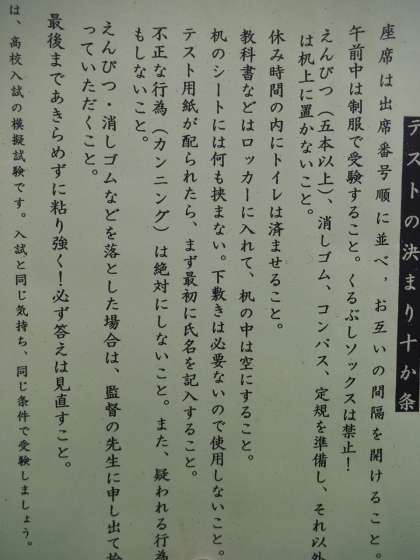 テストの決まり十か条
座席は出席番号順に並べ，お互いの間隔を開けること。
午前中は制服で受験すること。くるぶしソックスは禁止！
えんぴつ（五本以上）、消しゴム、コンパス、定規を準備し、それ以外
は机上に置かないこと。
休み時間の内にトイレは済ませること。
教科書などはロッカーに入れて、机の中は空にすること。
机のシートには何も挟まない。下敷きは必要ないので使用しないこと。
テスト用紙が配られたら、まず最初に氏名を記入すること。
不正な行為（カンニング）は絶対にしないこと。また、疑われる行為
もしないこと。
えんぴつ・消しゴムなどを落とした場合は、監督の先生に申し出て拾
っていただくこと。
最後まであきらめずに粘り強く！必ず答えは見直すこと。
は、高校入試の模擬試験です。入試と同じ気持ち、同じ条件で受験しましょう。